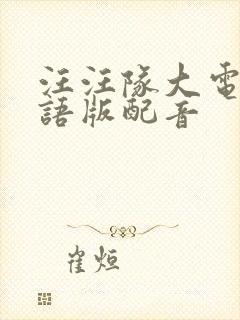 汪汪隊大電
語版配音
崔烜